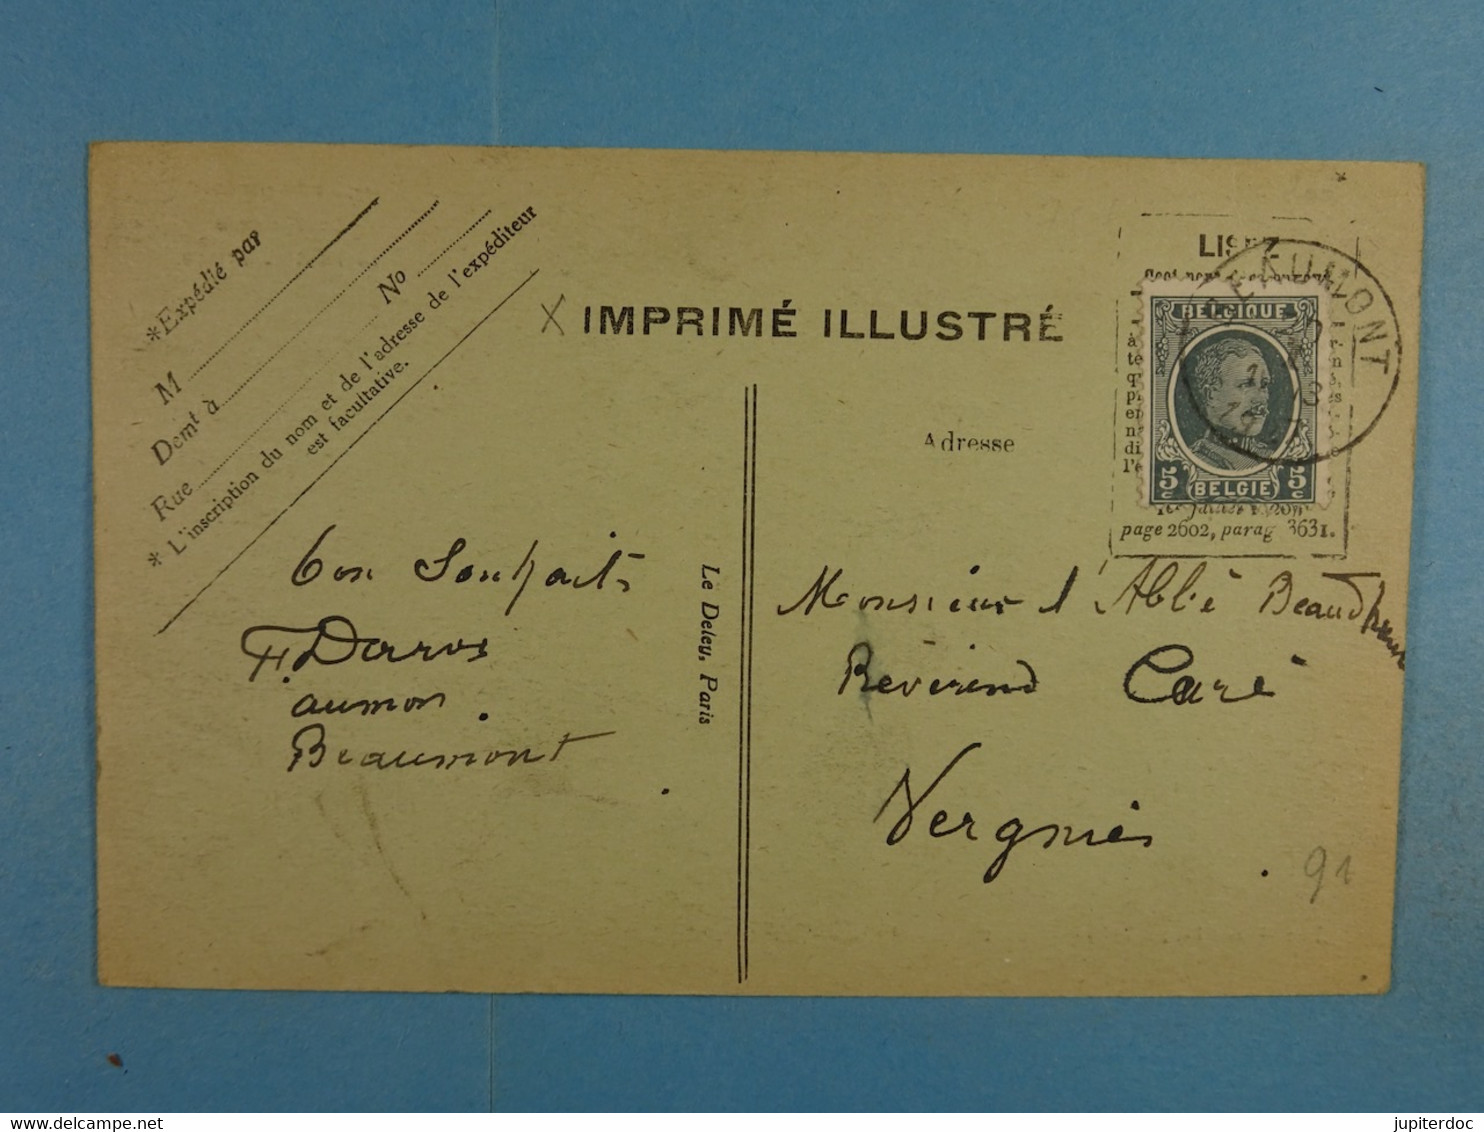 *Expédié par
M
Domt à
Rue No
* L'inscription du nom et de l'adresse de l'expéditeur
est facultative.
IMPRIMÉ ILLUSTRÉ
Adresse
LISEZ
BEAUMONT
BELGIQUE
5 c BELGIE 5 c
page 2602, parag 3631.
Le Deley, Paris
bon Souhaits
aumon
Beaumont
Monsieur l Abbé
Révérend Curé
Vergnies
91
jupiterdoc